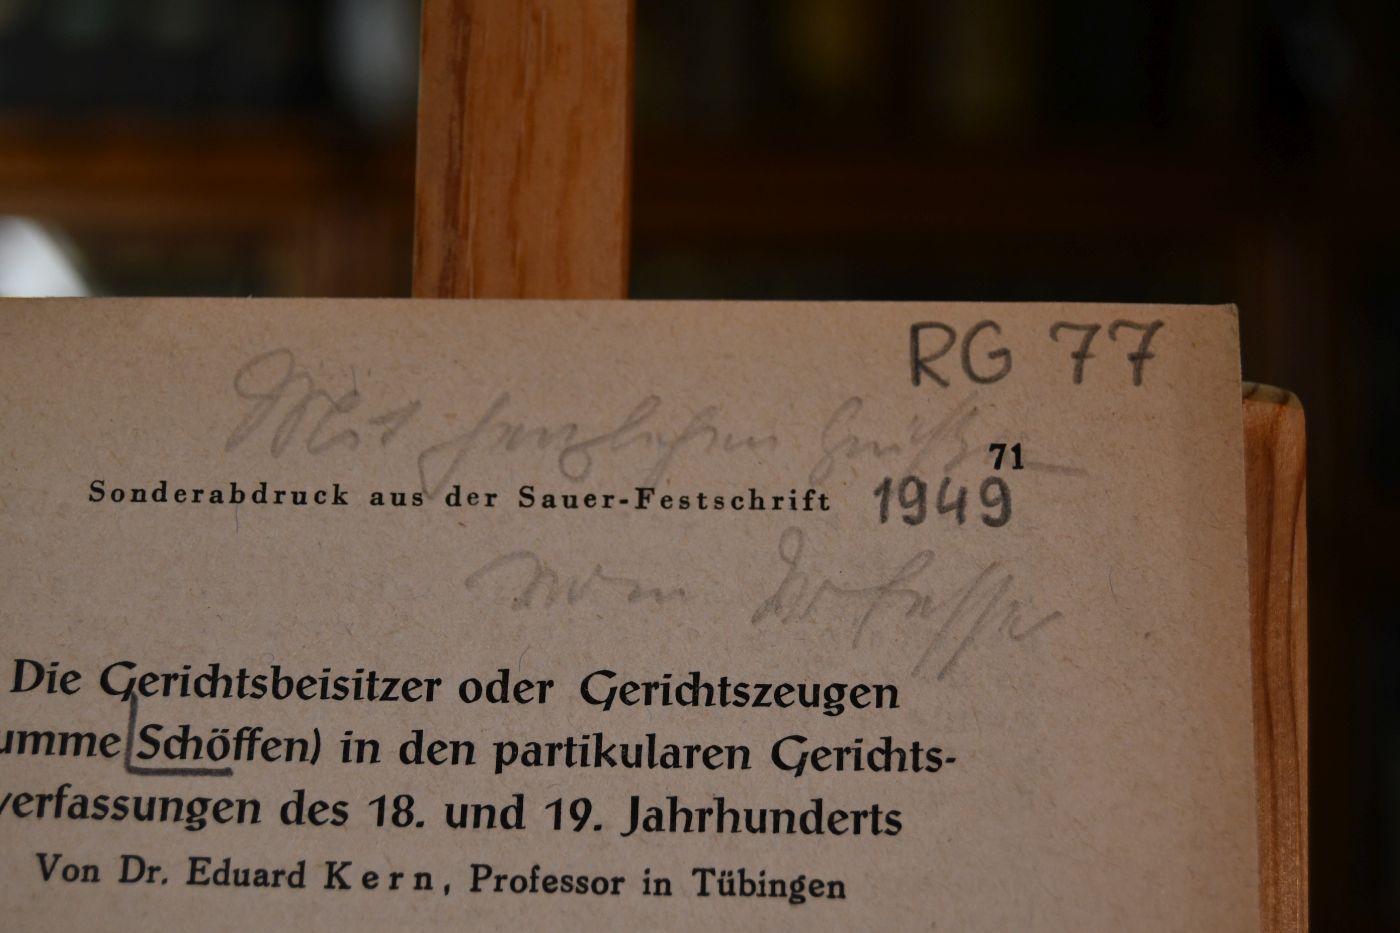 RG 77
Mit herzlichen Grüßen
71
Sonderabdruck aus der Sauer-Festschrift 1949
vom Verfasser
Die Gerichtsbeisitzer oder Gerichtszeugen
umme Schöffen) in den partikularen Gerichts-
verfassungen des 18. und 19. Jahrhunderts
Von Dr. Eduard Kern, Professor in Tübingen